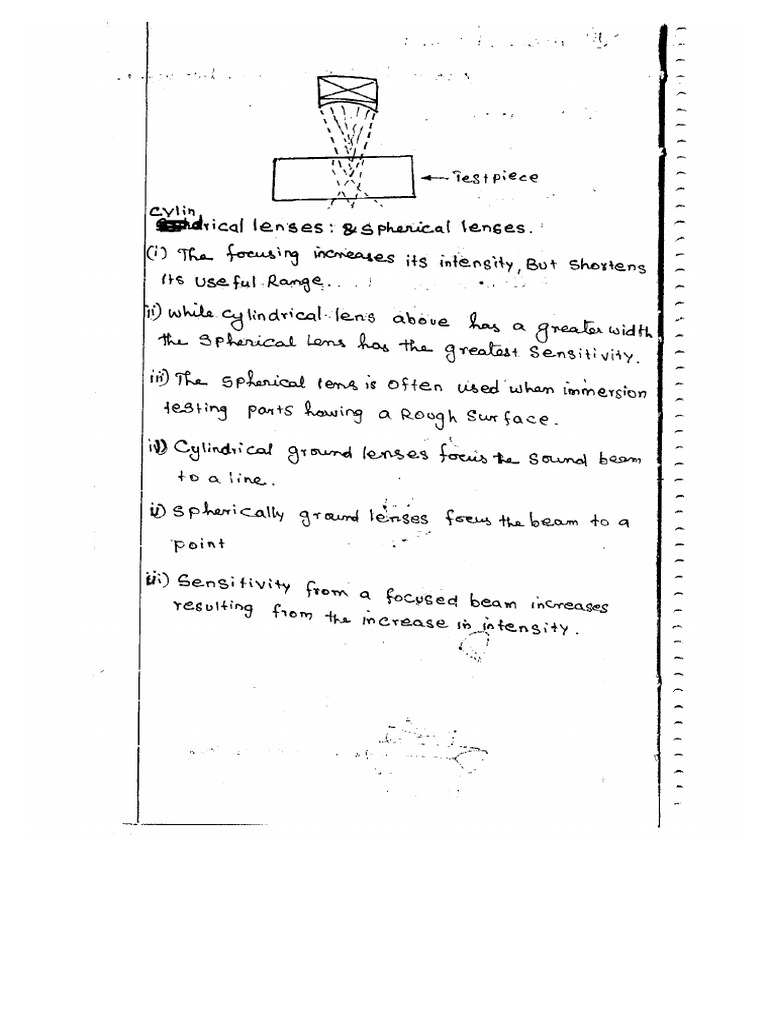 Testpiece
Cylindrical lenses: & Spherical lenses.
(i) The focusing increases its intensity, But shortens
its useful Range.
ii) While cylindrical lens above has a greater width
the Spherical Lens has the greatest Sensitivity.
iii) The spherical lens is often used when immersion
testing parts having a Rough Surface.
iv) Cylindrical ground lenses focus the sound beam
to a line.
v) Spherically ground lenses focus the beam to a
point
vi) Sensitivity from a focused beam increases
resulting from the increase in intensity.